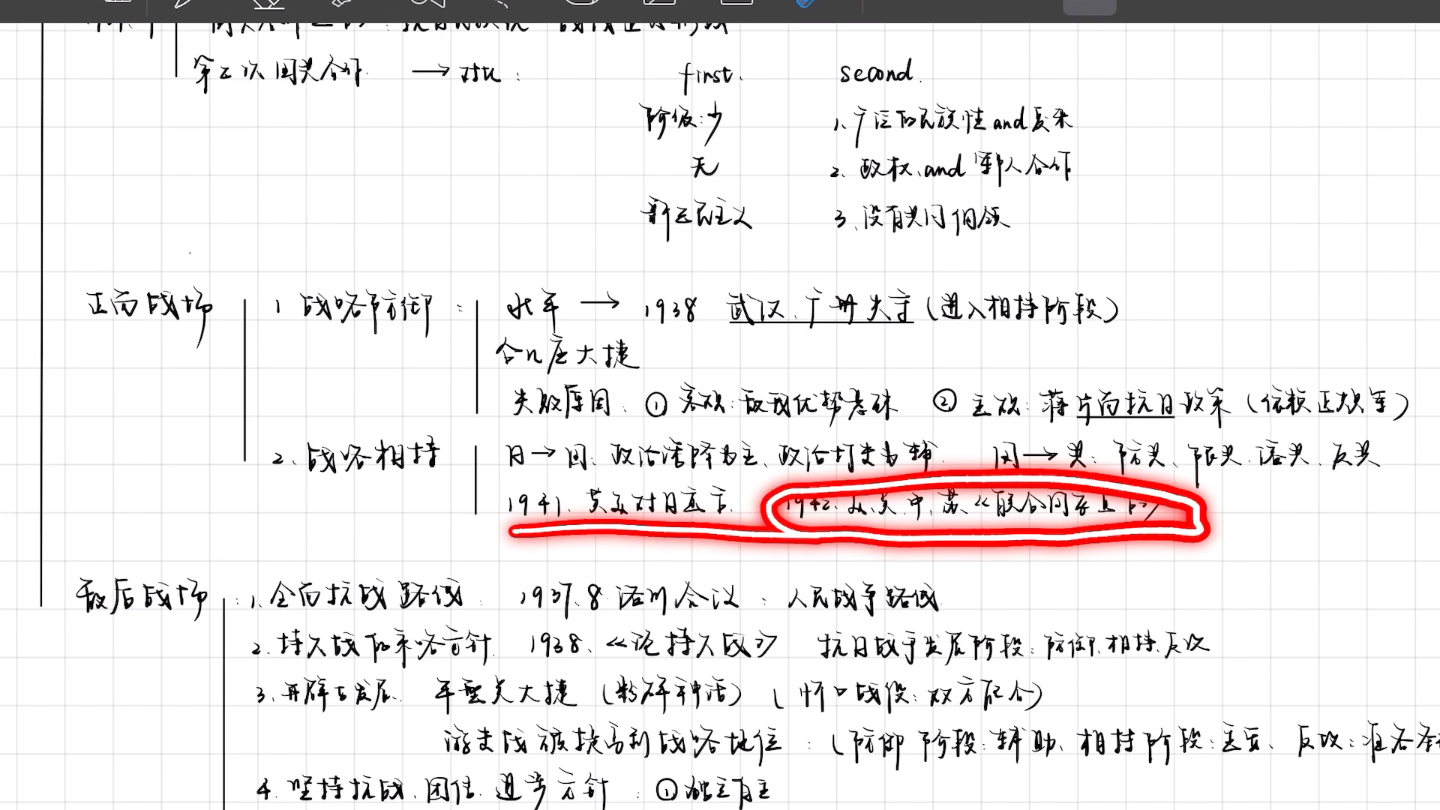 第二次国共合作 → 对比: first. second.
阶级:少 1、广泛的民族性and复杂
无 2、政权、and 军队合作
新三民主义 3、没有共同纲领
正面战场 1 战略防御: 此年 → 1938 武汉、广州失守(进入相持阶段)
台儿庄大捷
失败原因: ① 客观:敌我优势悬殊 ② 主观:蒋片面抗日政策(依赖正规军)
2、战略相持 日→国:政治诱降为主、政治打击为辅 国→共:防共、限共、溶共、反共
1941、英美对日宣言. 1942、美、英、中、苏《联合国家宣言》
敌后战场: 1、全面抗战路线: 1937.8 洛川会议: 人民战争路线
2、持久战的策略方针 1938、《论持久战》 抗日战争发展阶段:防御、相持、反攻
3、开辟与发展. 平型关大捷(粉碎神话)(忻口战役:双方配合)
游击战被提高到战略地位:(防御阶段:辅助、相持阶段:主要、反攻:准备
4、坚持抗战、团结、进步方针: ①独立自主